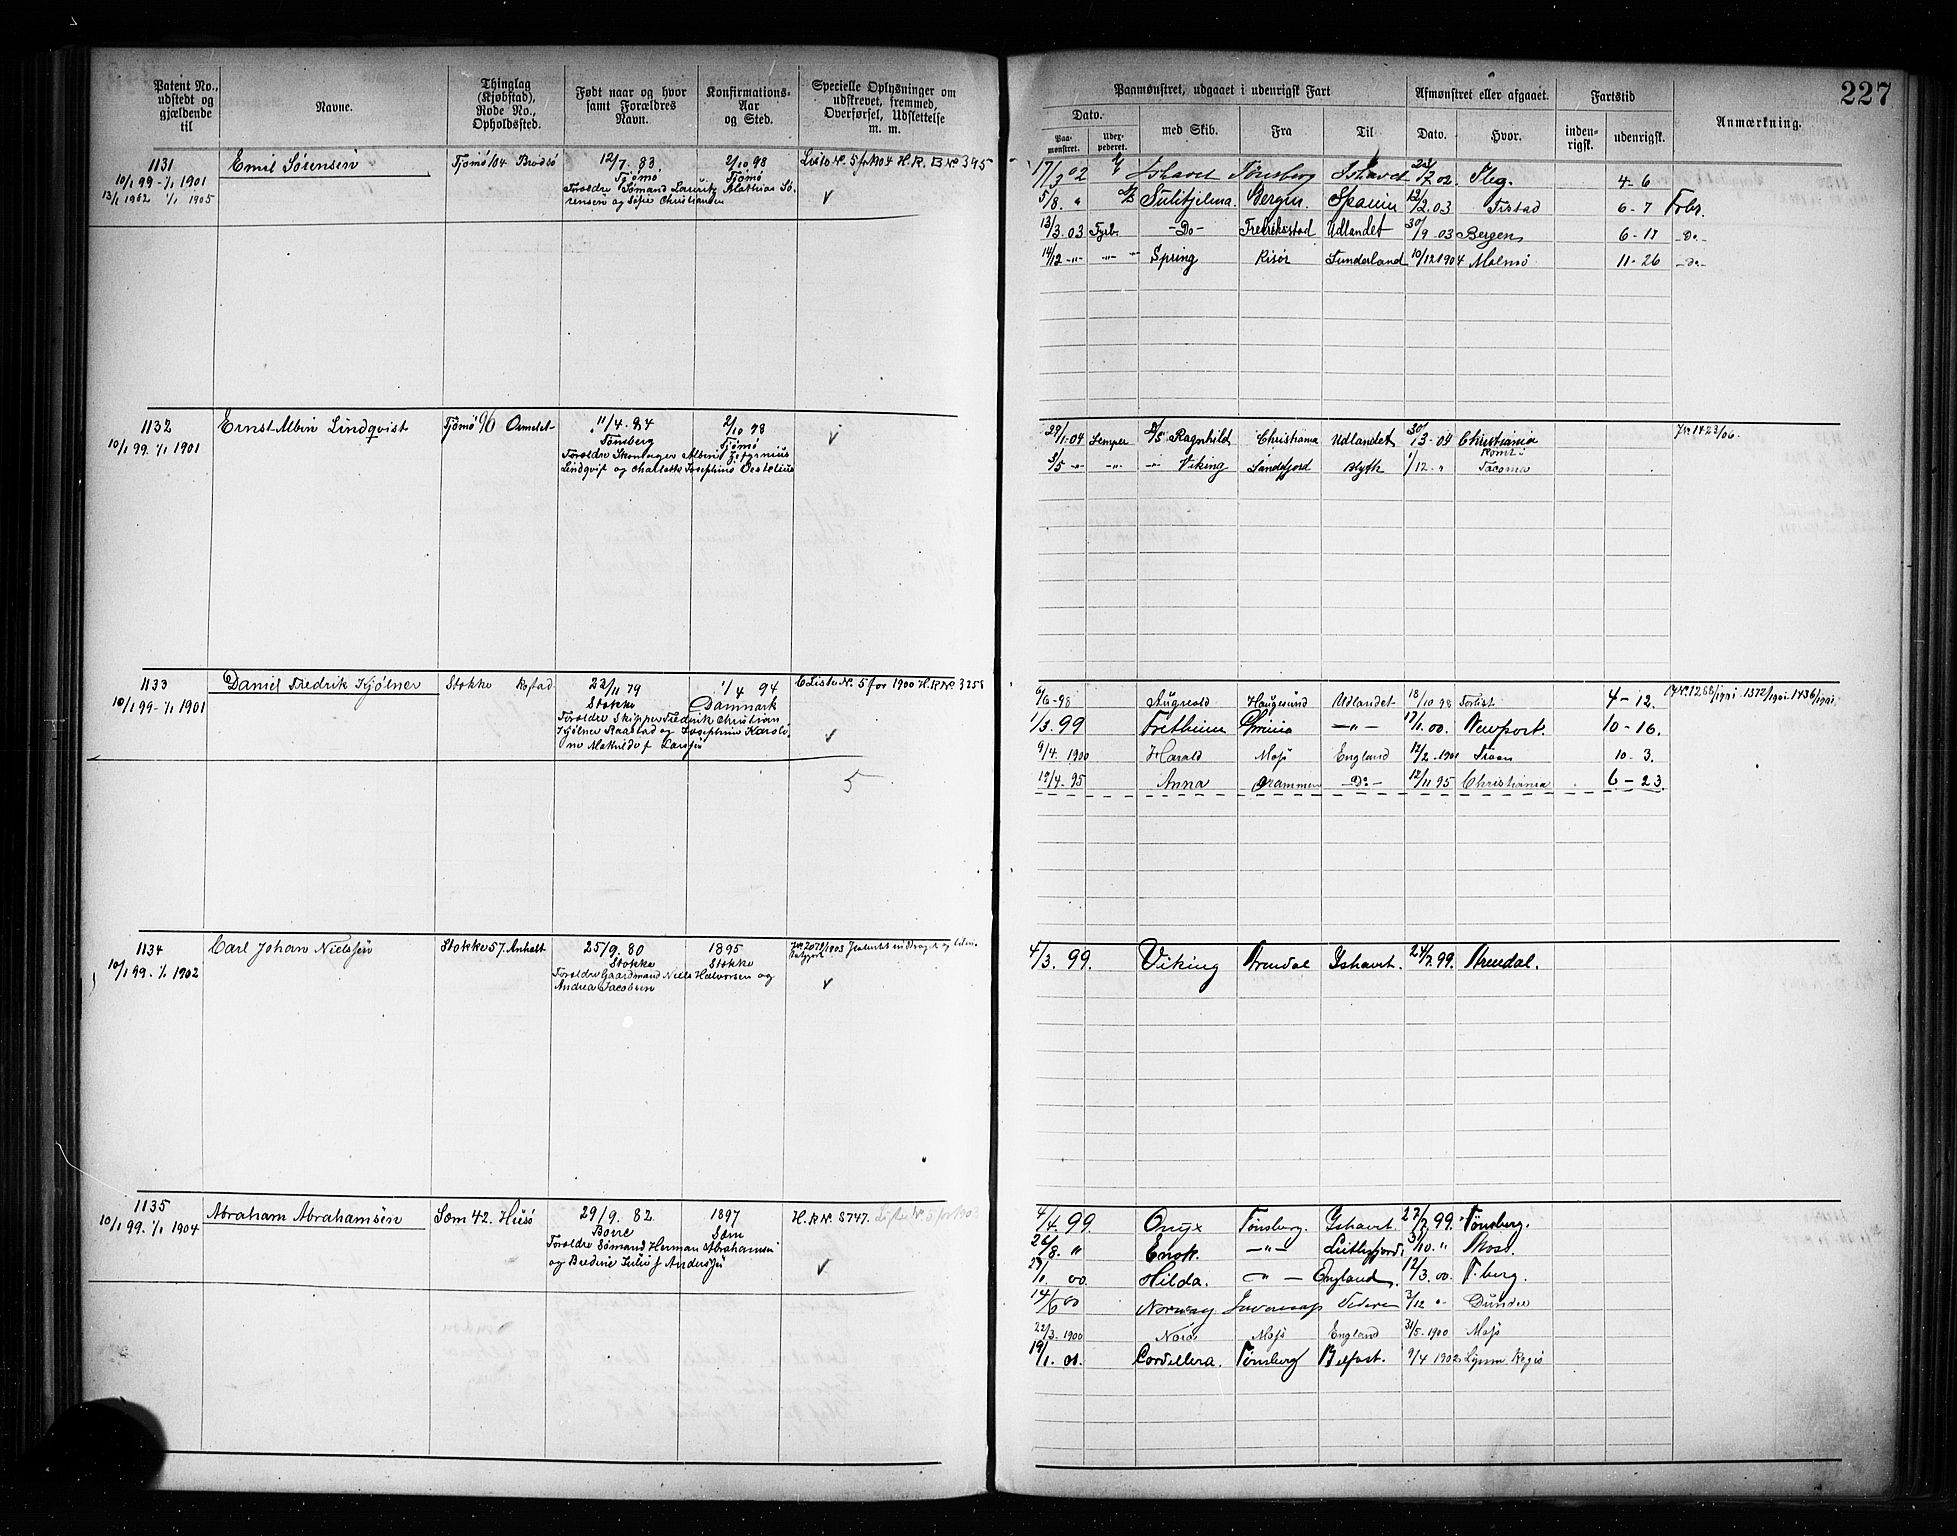 227
Patent No., udstedt og gjældende til
Navne.
Thinglag (Kjøbstad), Rode No., Opholdssted.
Født naar og hvor samt Forældres Navn.
Konfirmations- Aar og Sted.
Specielle Oplysninger om udskrevet, fremmed, Overførsel, Udslettelse m. m.
Paamønstret, udgaaet i udenrigsk Fart
Dato.
Paa- mønstret.
Uder- pederet.
med Skib.
Fra
Til
Afmønstret eller afgaaet.
Dato.
Hvor.
Fartstid
inden- rigsk.
udenrigsk.
Anmærkning.
1131 Emil Sørensen Tjømø 104 Brødsø 12/7. 83 2/10 98 Liste No. 5 for 1904 H. R. B No 395
10/1 99 - 1/1 1901 Tjømø Tjømø
13/1 1902 1/1 1905 Foreldre Sømand Lauritz Mathias Sø
rensen og Sofie Christiansen
17/3 02 Ishavet Tønsberg Ishavet /7 02. 4-6
5/8. " Sulitjelma. Bergen Spanien 12/2. 03 Fr.stad 6-7 Forbr.
13/3. 03 Fyrb. -Do- Fredrikstad Udlandet 30/9 03 Bergen 6-17 -Do-
14/12 -"- -"- Spring Risør Sunderland 10/12 1904 Malmø 11-26 -Do-
1132 Ernst Albin Lindqvist Tjømø 96 Ormelet 11/4. 84 2/10 98
10/1 99. 1/1 1901 Tønsberg Tjømø
Foreldre Skomager Albin Zefyrinius
Lindqvist og Charlotte Josephine
29/1. 04 Semper Ragnhild Christiania Udlandet 30/3. 04 Christiania Jr. 1423/06.
3/5 -"- -"- Viking Sandefjord Blyth 1/12. " Rømt i Tacoma
1133 Daniel Fredrik Kjølner Stokke Rostad 22/11 79 1/4 94 C Liste No. 5 for 1900 H. R No 3258
10/1 99 - 1/1 1901 Stokke Danmark
Foreldre Skipper Fredrik Christian
Kjølner Raastad og Josephine Karoli
ne Mathilde f Larsen
5
6/6-98 Augvald Haugesund Udlandet 18/10 98 Forlist 4-12. 1268/1901. 1372/1901. 1436/1901.
1/3. 99 Fretheim -"- 17/1. 00. Newport. 10-16.
9/4. 1900 Harald Moss England 12/2. 1901 10. 3.
19/4. 95 Anna Drammen -Do- 12/11 95 Christiania 6-23.
1134 Carl Johan Nielssen Stokke 57. Anholt 25/9. 80 1895 Jr. 2079/1903
10/1 99. 1/1 1902 Stokke Stokke
Foreldre Gaardmand Niels Halvorsen og
Andrea Jacobsen
4/3. 99. Viking Arendal Ishavet. 24/7. 99. Arendal.
1135 Abraham Abrahamsen Sem 42. Husø 29/9. 82. 1897 H. R No. 8747. Liste No 5 for 1903
10/1 99. 1/1 1904 Borre Sem
Foreldre Sømand Herman Abrahamsen
og Bredine Julie f Andersen
4/4. 99. Onyx Tønsberg. Ishavet. 27/7. 99. Tønsberg.
26/8. " Enok. -"- 31/10. " Moss.
29/1. 00 Hilda. -"- England. 12/3. 00. T.berg.
14/6 00 Norway 3/12 "- Dundee
22/3. 1900 Nora Moss England 31/5. 1900 Moss
19/1. 01. Cordillera. Tønsberg Belfast. 9/4 1902 Lynn Regis